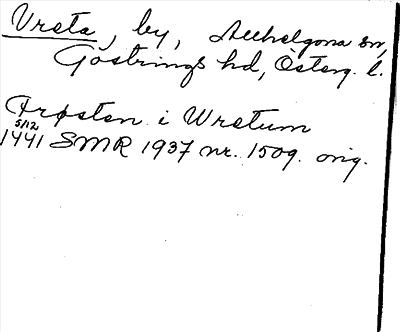 Vreta, by, Allhelgona sn,
Göstrings hd, Österg. l.
Arösten i Wretum
5/12
1441 SMR 1937 nr. 1509. orig.